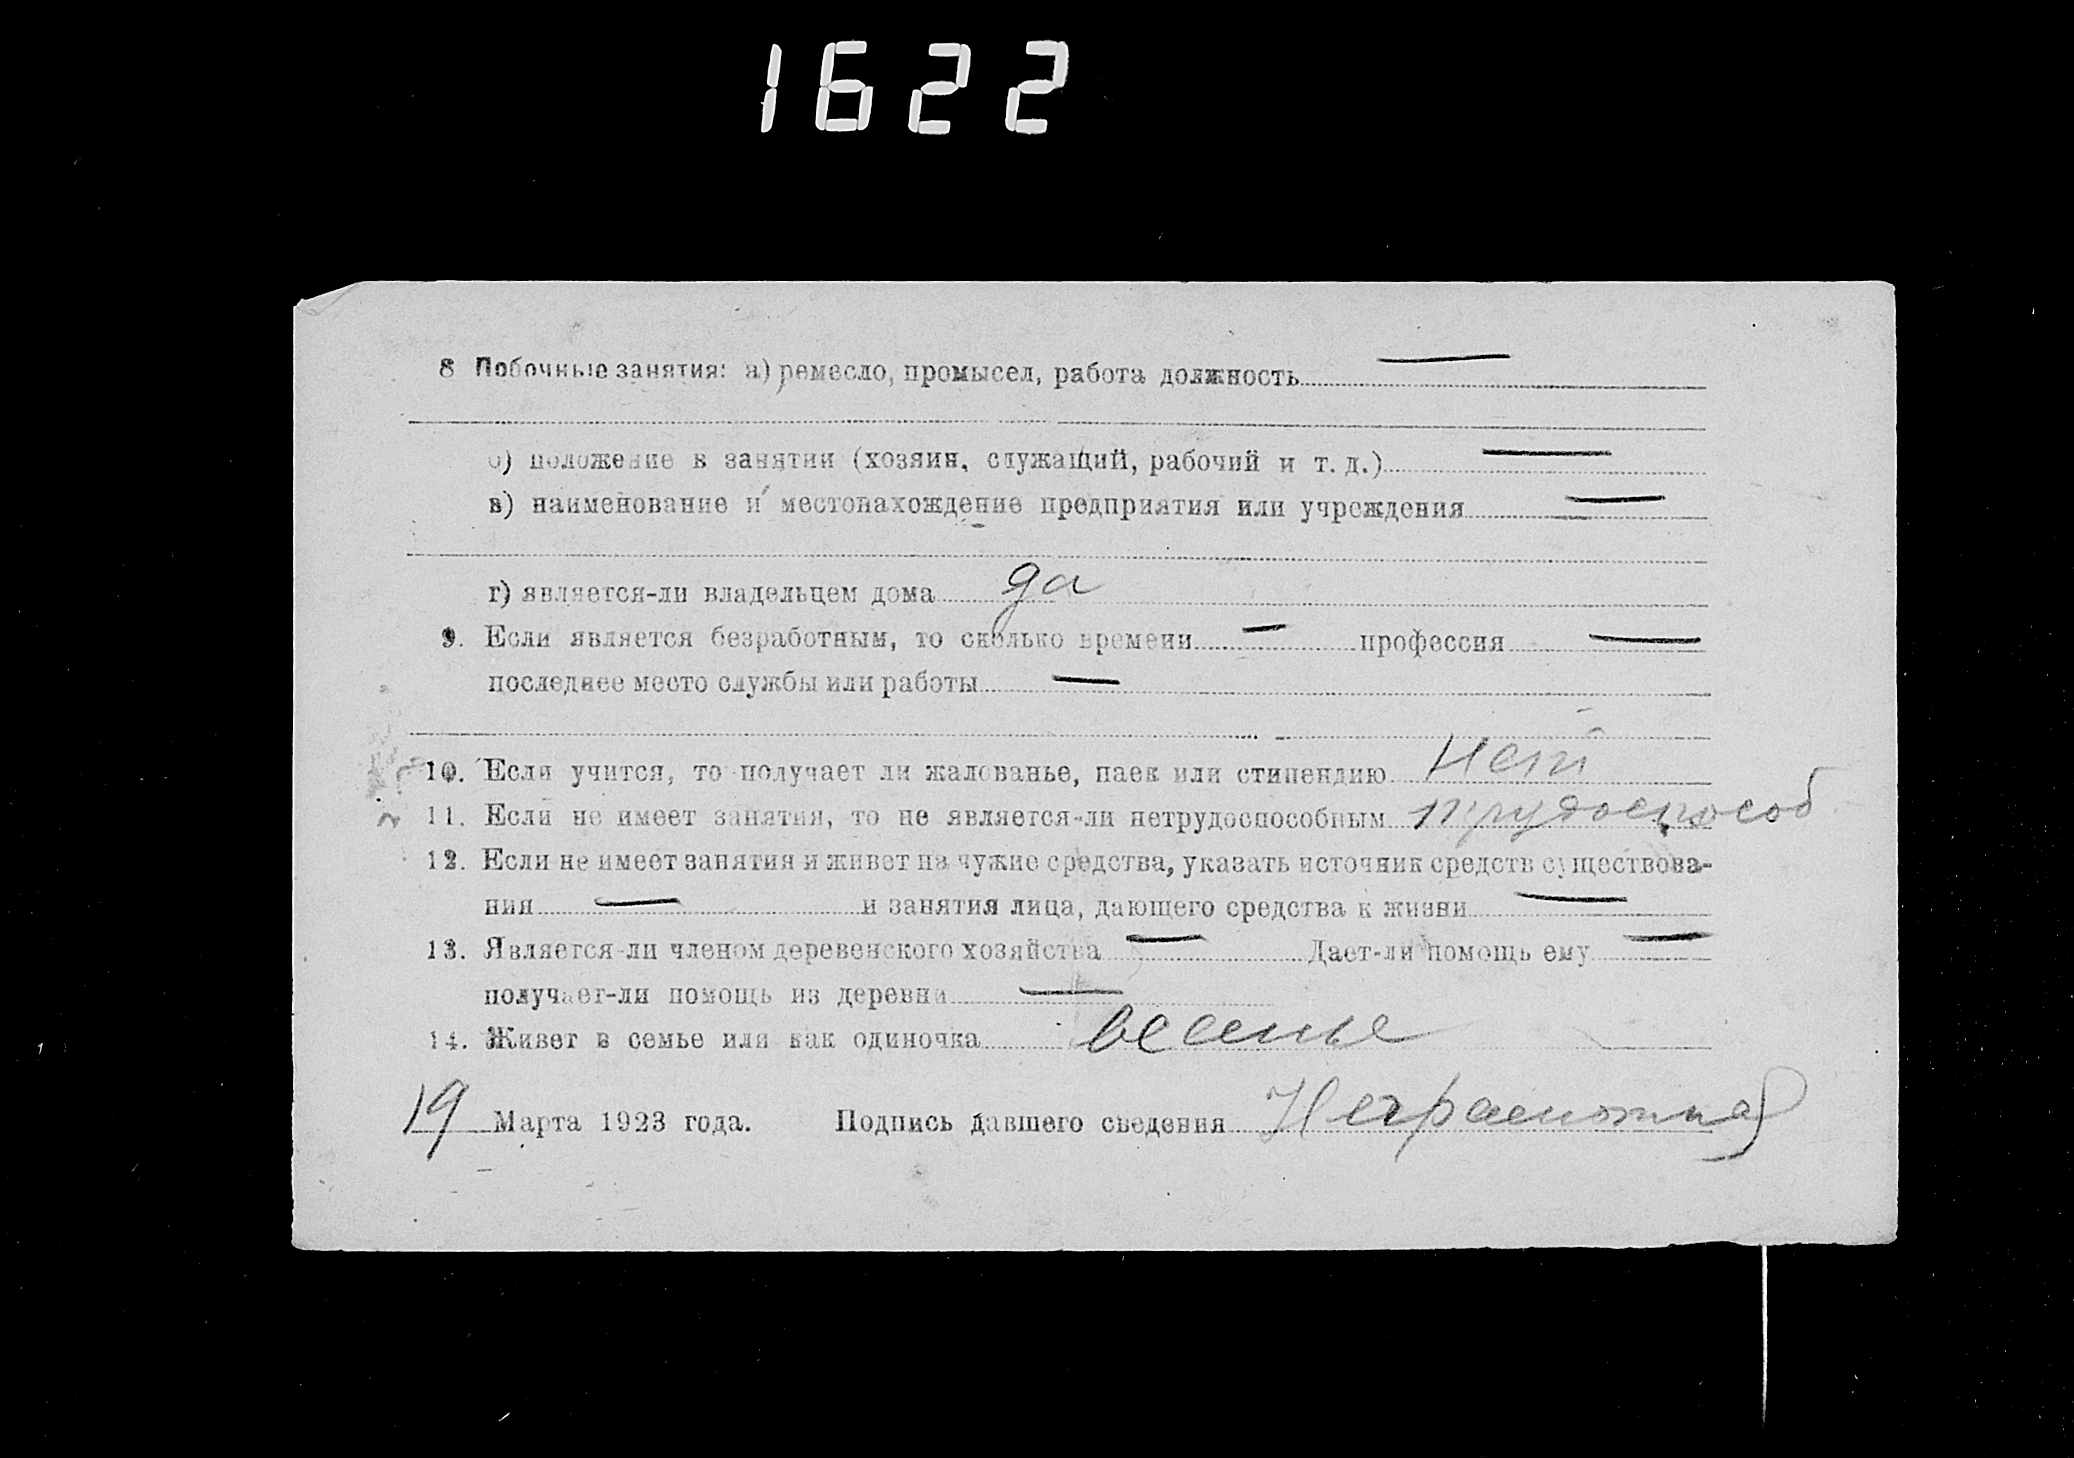 1622
8 Побочные занятия: а) ремесло, промысел, работа должность —
б) положение в занятии (хозяин, служащий, рабочий и т. д.) —
в) наименование и местонахождение предприятия или учреждения —
г) является-ли владельцем дома да
9. Если является безработным, то сколько времени — профессия —
последнее место службы или работы —
10. Если учится, то получает ли жалованье, паек или стипендию нет
11. Если не имеет занятия, то не является-ли нетрудоспособным трудоспособ
12. Если не имеет занятия и живет на чужие средства, указать источник средств существова-
ния — и занятия лица, дающего средства к жизни —
13. Является-ли членом деревенского хозяйства — Дает-ли помощь ему —
получает-ли помощь из деревни —
14. Живет в семье или как одиночка всемье
19 Марта 1923 года. Подпись давшего сведения Неграмотная